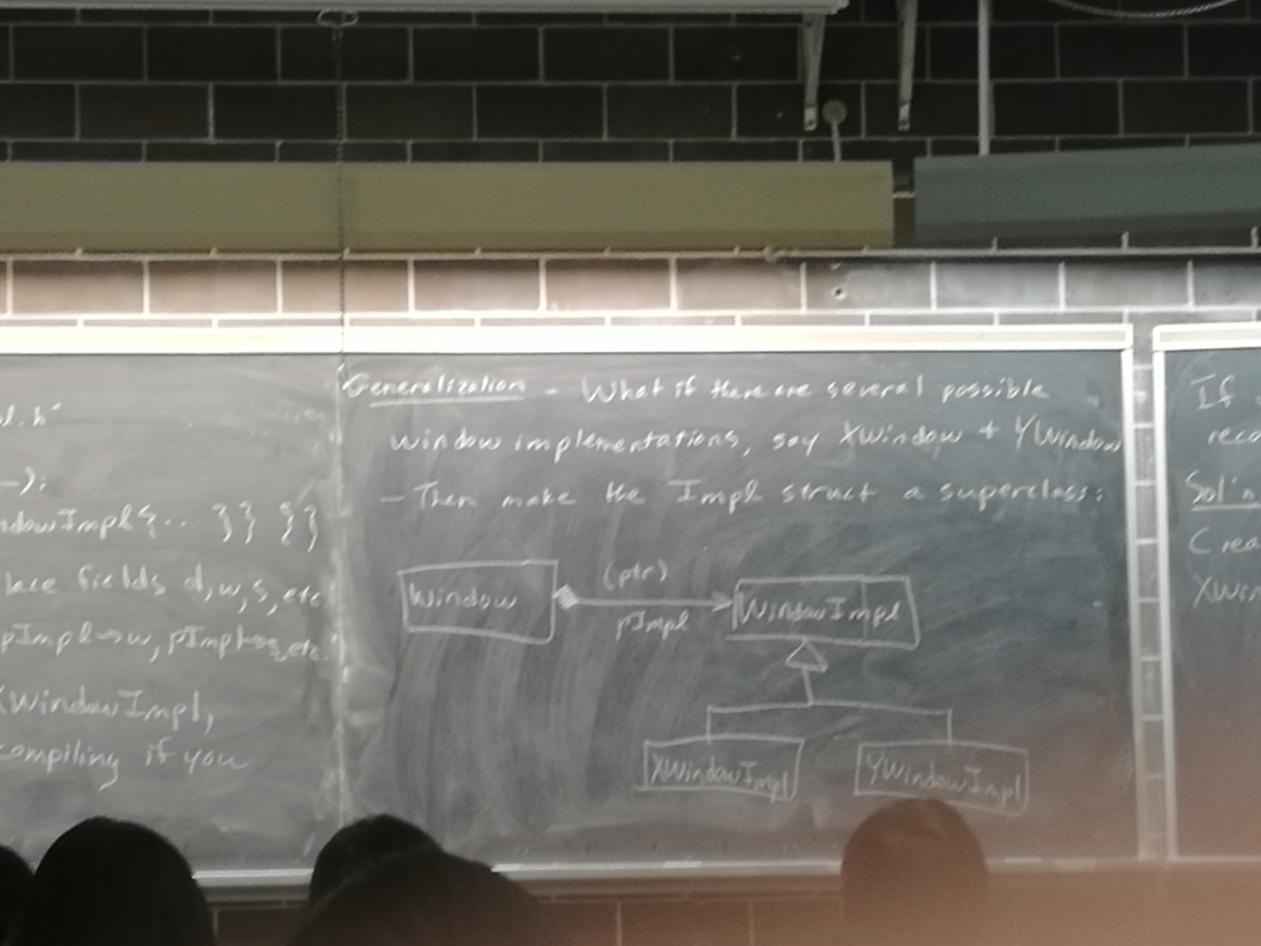 l.h"
—);
ndowImpl{... }} {}
lace fields d,w,s,etc.
pImpl->w, pImpl->s,etc.
XWindowImpl,
compiling if you
Generalization - What if there are several possible
window implementations, say XWindow + YWindow
- Then make the Impl struct a superclass:
Window
(ptr)
pImpl
WindowImpl
XWindowImpl
YWindowImpl
If
reco
Sol'n
Crea
XWin